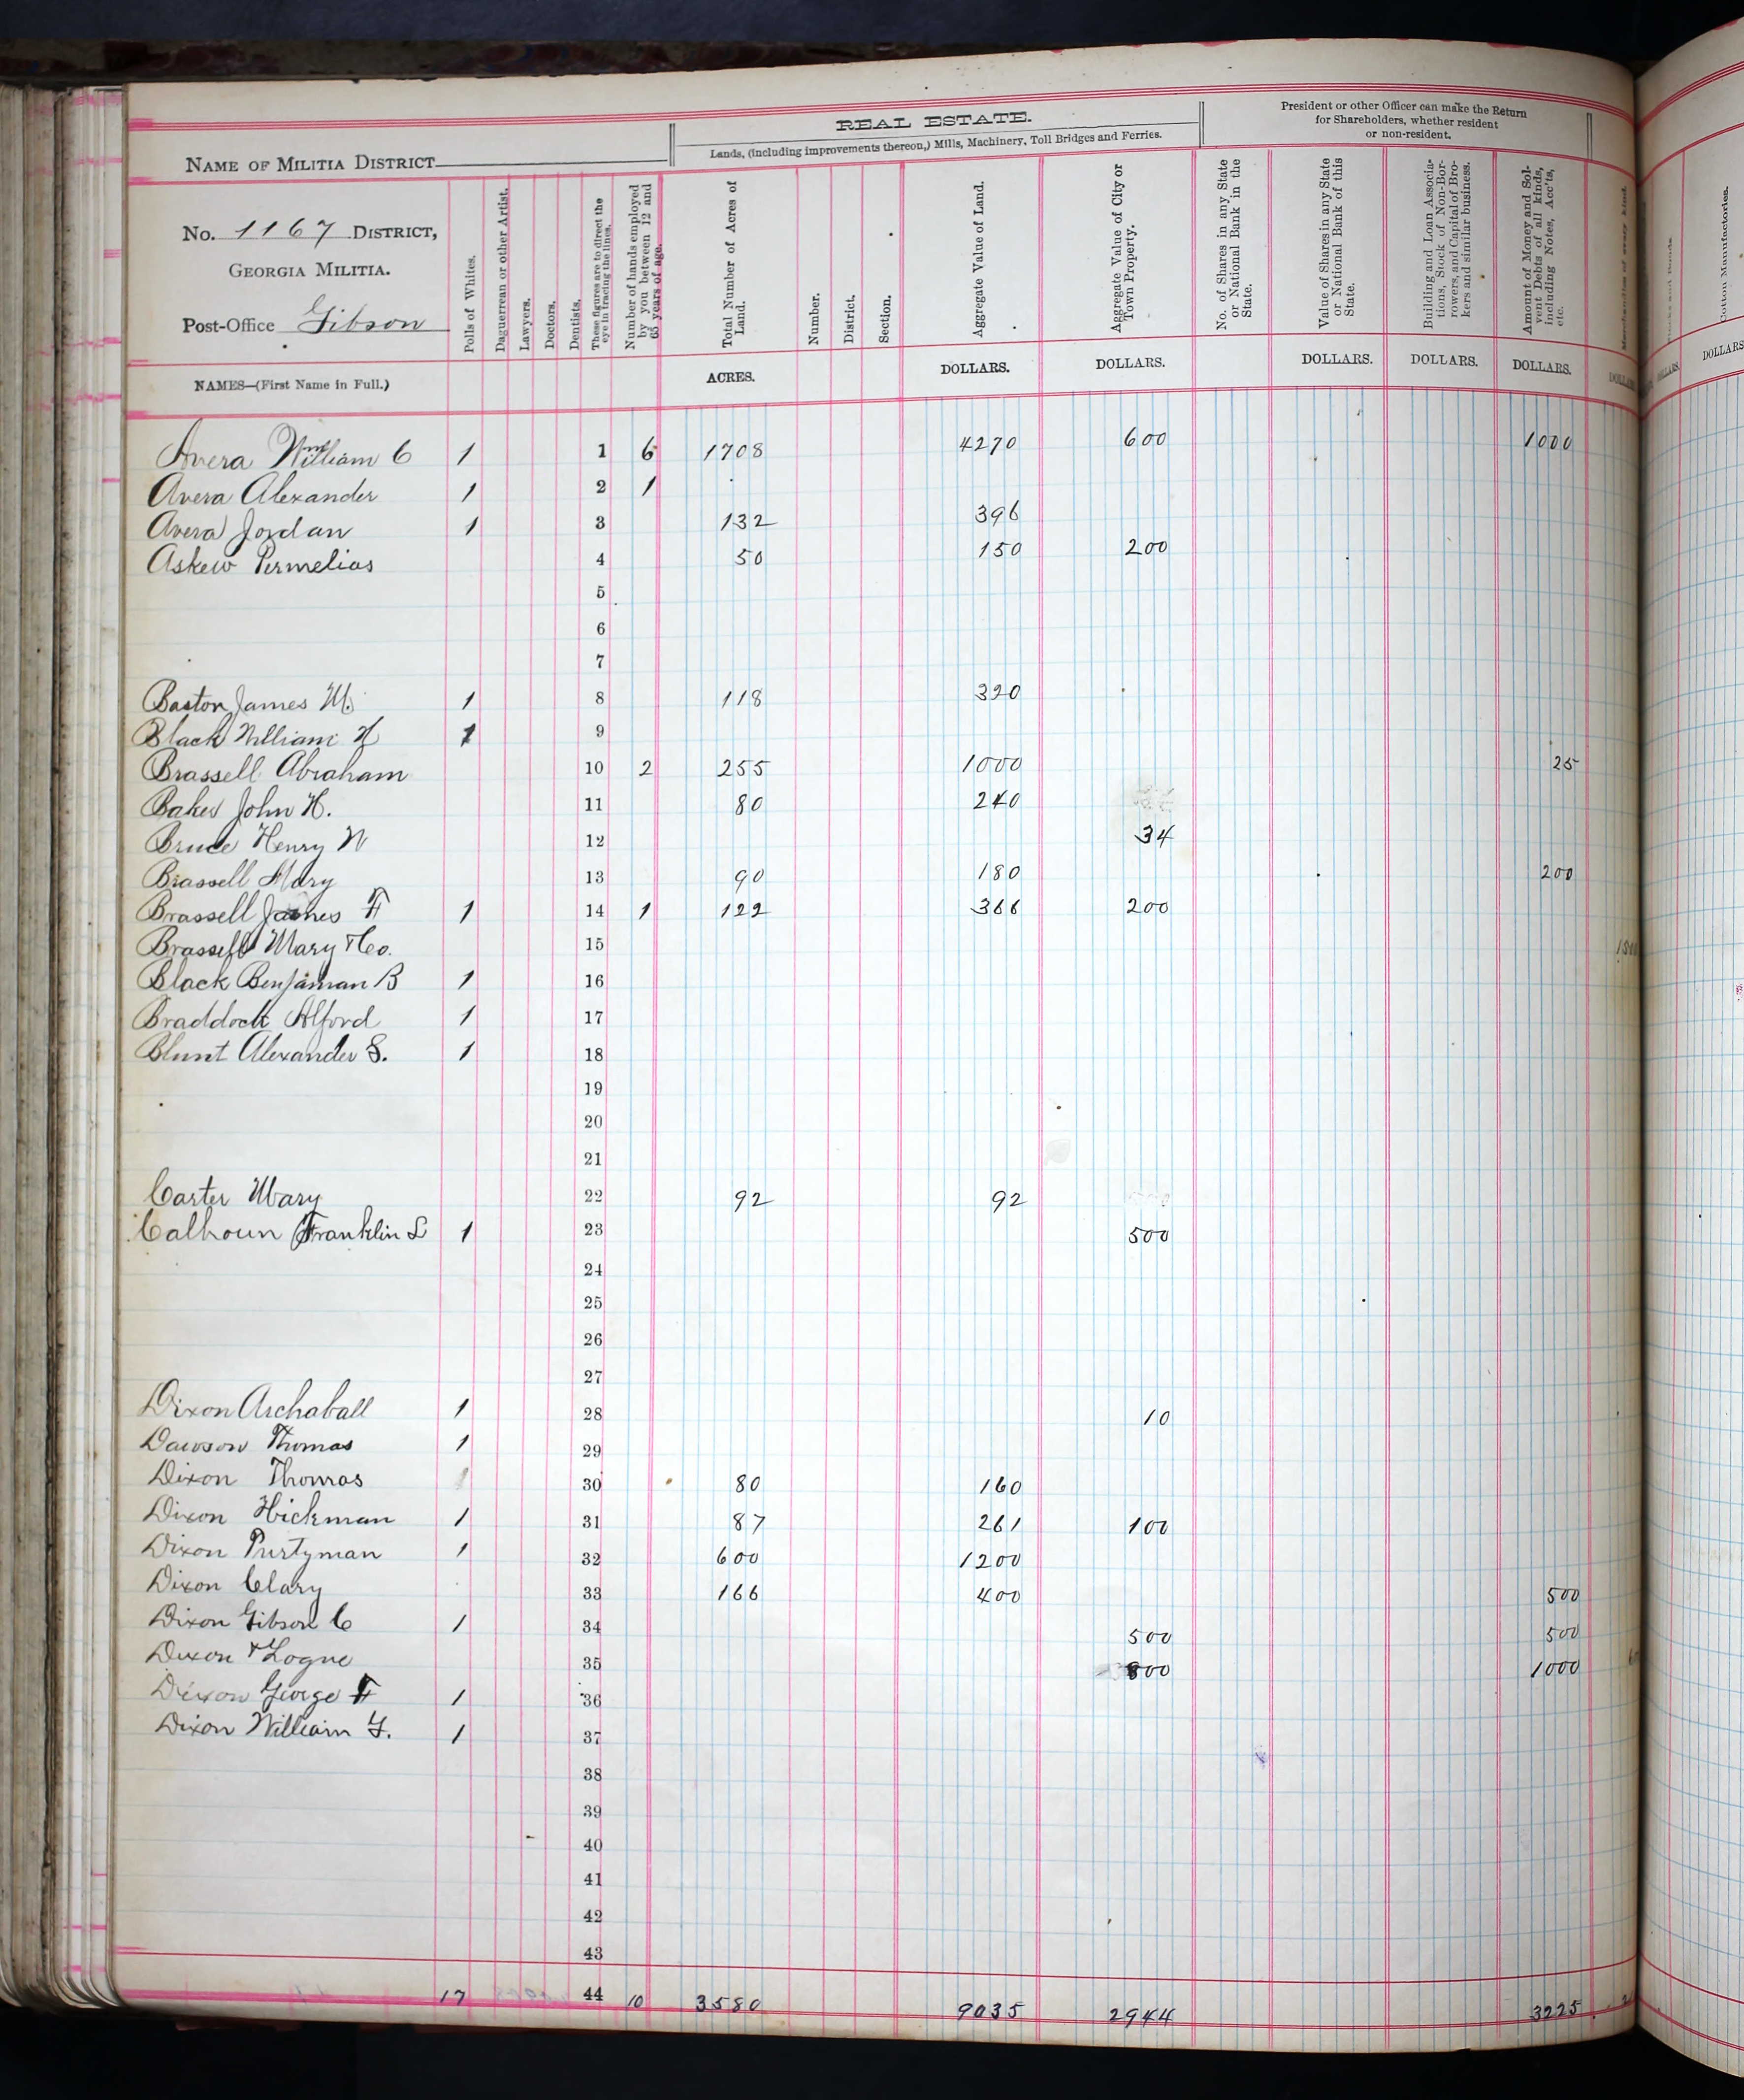 REAL ESTATE.
Lands, (including improvements thereon,) Mills, Machinery, Toll Bridges and Ferries.
President or other Officer can make the Return
for Shareholders, whether resident
or non-resident.
NAME OF MILITIA DISTRICT
No. 1167 DISTRICT,
GEORGIA MILITIA.
Post-Office Gibson
NAMES—(First Name in Full.)
Polls of Whites.
Daguerrean or other Artist.
Lawyers.
Doctors.
Dentists.
These figures are to direct the
eye in tracing the lines.
Number of hands employed
by you between 12 and
65 years of age.
Total Number of Acres of
Land.
ACRES.
Number.
District.
Section.
Aggregate Value of Land.
DOLLARS.
Aggregate Value of City or
Town Property.
DOLLARS.
No. of Shares in any State
or National Bank in the
State.
Value of Shares in any State
or National Bank of this
State.
DOLLARS.
Building and Loan Associa-
tions, Stock of Non-Bor-
rowers, and Capital of Bro-
kers and similar business.
DOLLARS.
Amount of Money and Sol-
vent Debts of all kinds,
including Notes, Acc'ts,
etc.
DOLLARS.
Merchandise of every kind.
Cotton Manufactories.
DOLLARS
Avera William C 1 1 6 1708 4270 600 1000
Avera Alexander 1 2 1
Avera Jordan 1 3 132 396
Askew Permelias 4 50 150 200
5
6
7
Baston James M. 1 8 118 320
Black William H 1 9
Brassell Abraham 10 2 255 1000 25
Baker John H. 11 80 240
Bruce Henry W 12 34
Brassell Mary 13 90 180 200
Brassell James F 1 14 1 122 366 200
Brassell Mary & Co. 15
Black Benjaman B 1 16
Braddock Alford 1 17
Blunt Alexander S. 1 18
19
20
21
Carter Mary 22 92 92
Calhoun Franklin L 1 23 500
24
25
26
27
Dixon Archaball 1 28 10
Dawson Thomas 1 29
Dixon Thomas 30 80 160
Dixon Hickman 1 31 87 261 100
Dixon Purtyman 1 32 600 1200
Dixon Clary 33 166 400 500
Dixon Gibson C 1 34 500 500
Dixon & Logue 35 800 1000
Dixon George F 1 36
Dixon William G. 1 37
38
39
40
41
42
43
17 44 10 3580 9035 2944 3225